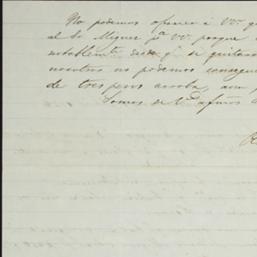 No podemos ofrecer á Vv.
al Sr Miguel pª VV. porque
notablemte desde q' se quitaron
nosotros no podemos conseguir
de tres pesos arroba, aun
Somos de V. afmos